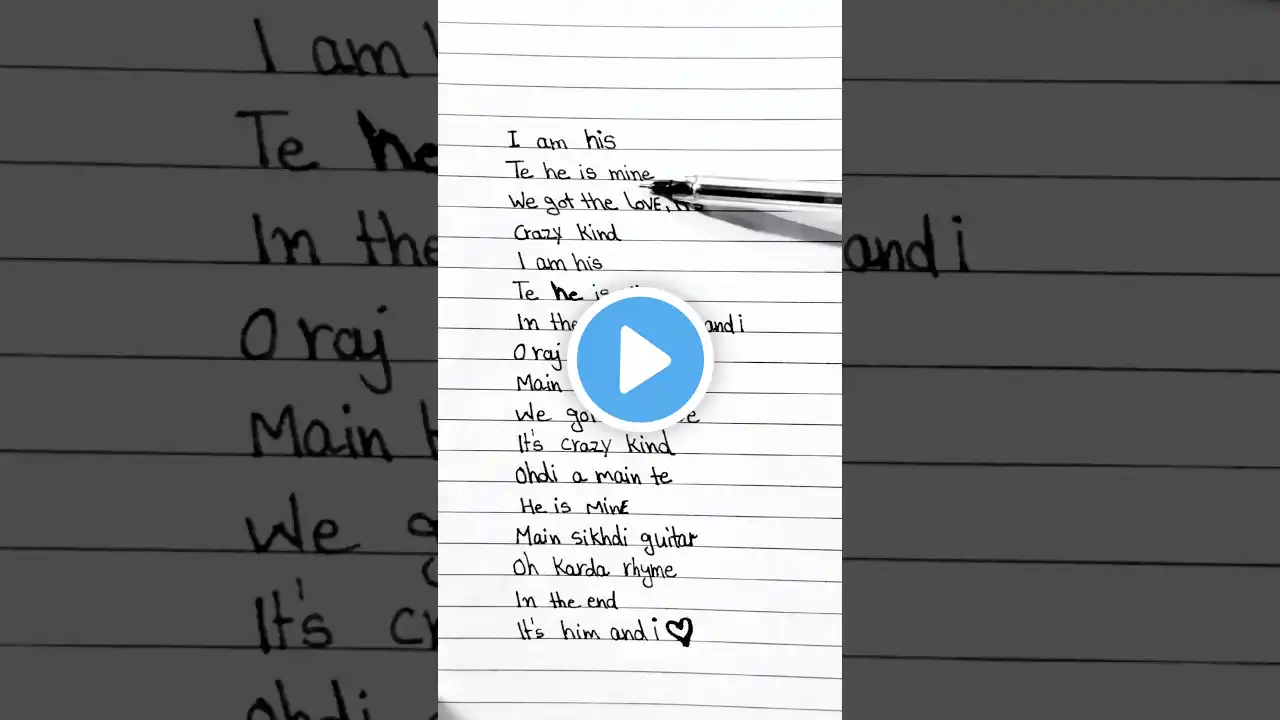 I am his
Te he is mine
We got the LOVE,
Crazy Kind
I am his
Te he is
In the and i
O raj
Main
We
It's crazy kind
Ohdi a main te
He is MinE
Main sikhdi guitar
Oh Karda rhyme
In the end
It's him and i